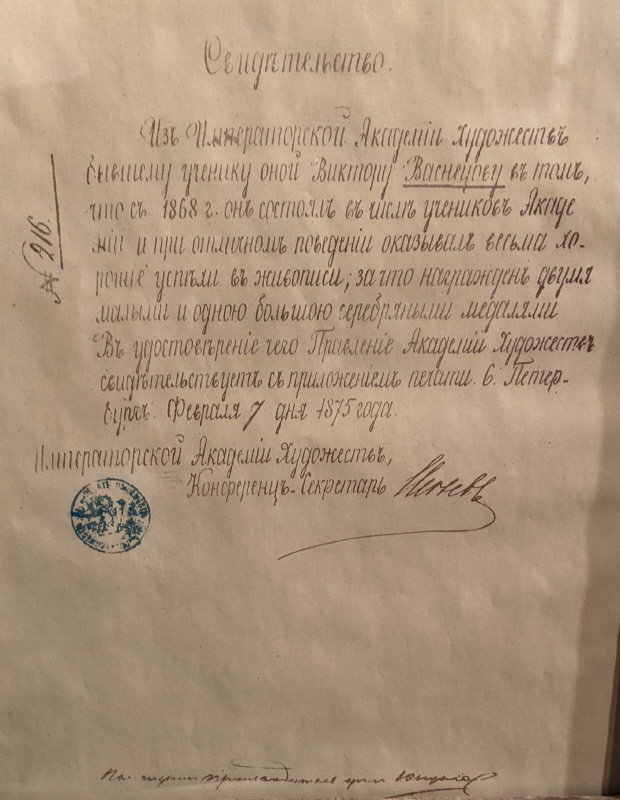 Свидѣтельство.
Изъ Императорской Академіи Художествъ
бывшему ученику оной Виктору Васнецову въ томъ,
что съ 1868 г. онъ состоялъ въ числѣ учениковъ Акаде
міи и при отличномъ поведеніи оказывалъ весьма хо-
рошіе успѣхи въ живописи; за что награжденъ двумя
малыми и одною большою серебряными медалями
Въ удостовѣреніе чего Правленіе Академіи Художествъ
свидѣтельствуетъ съ приложеніемъ печати. С. Петер-
бургъ. Февраля 7 дня 1875 года.
№ 216.
Императорской Академіи Художествъ,
Конференцъ-Секретарь